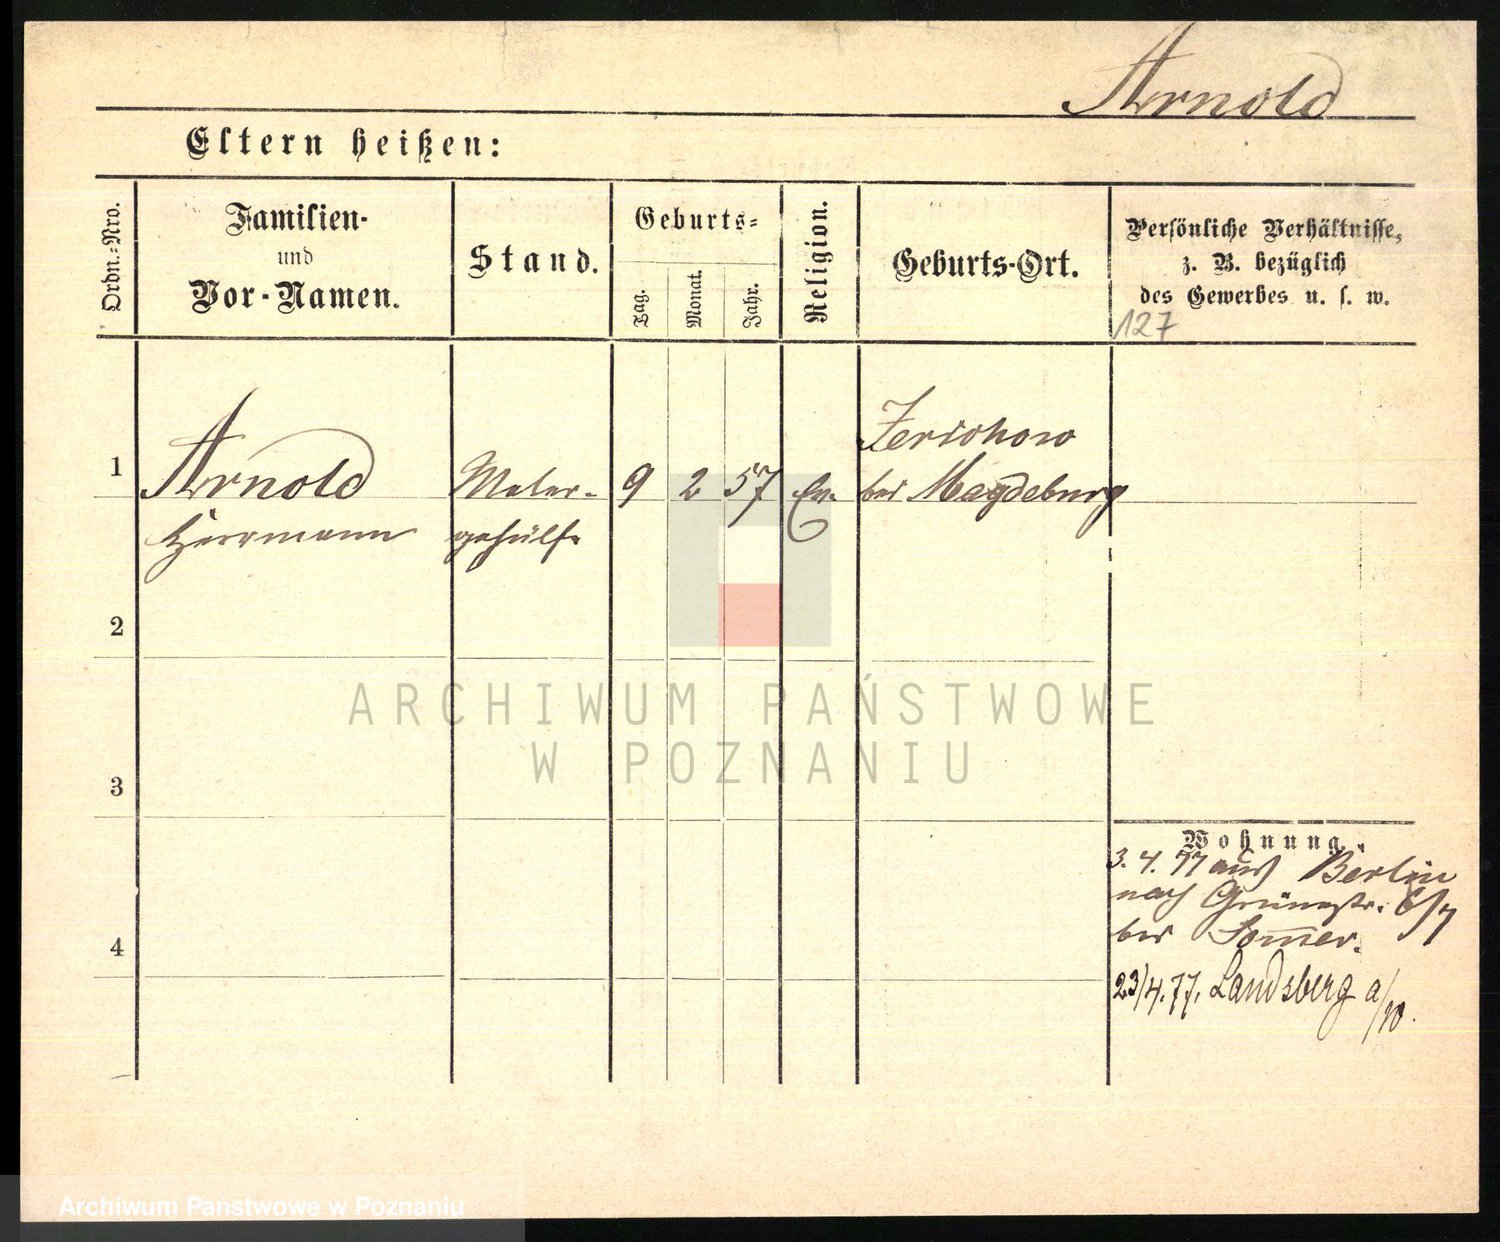 Arnold
Eltern heißen:
Ordn.-Nro.
Familien-
und
Vor-Namen.
Stand.
Geburts-
Tag.
Monat.
Jahr.
Religion.
Geburts-Ort.
Persönliche Verhältnisse,
z. B. bezüglich
des Gewerbes u. s. w.
127
1
Arnold
Herrmann
Maler-
gehülfe
9
2
57
Ev.
Jerichow
bei Magdeburg
2
3
4
Wohnung.
3. 4. 77 aus Berlin
nach Grünestr. 6/7
bei Somer.
23/4. 77. Landsberg a/W.
ARCHIWUM PAŃSTWOWE
W POZNANIU
Archiwum Państwowe w Poznaniu